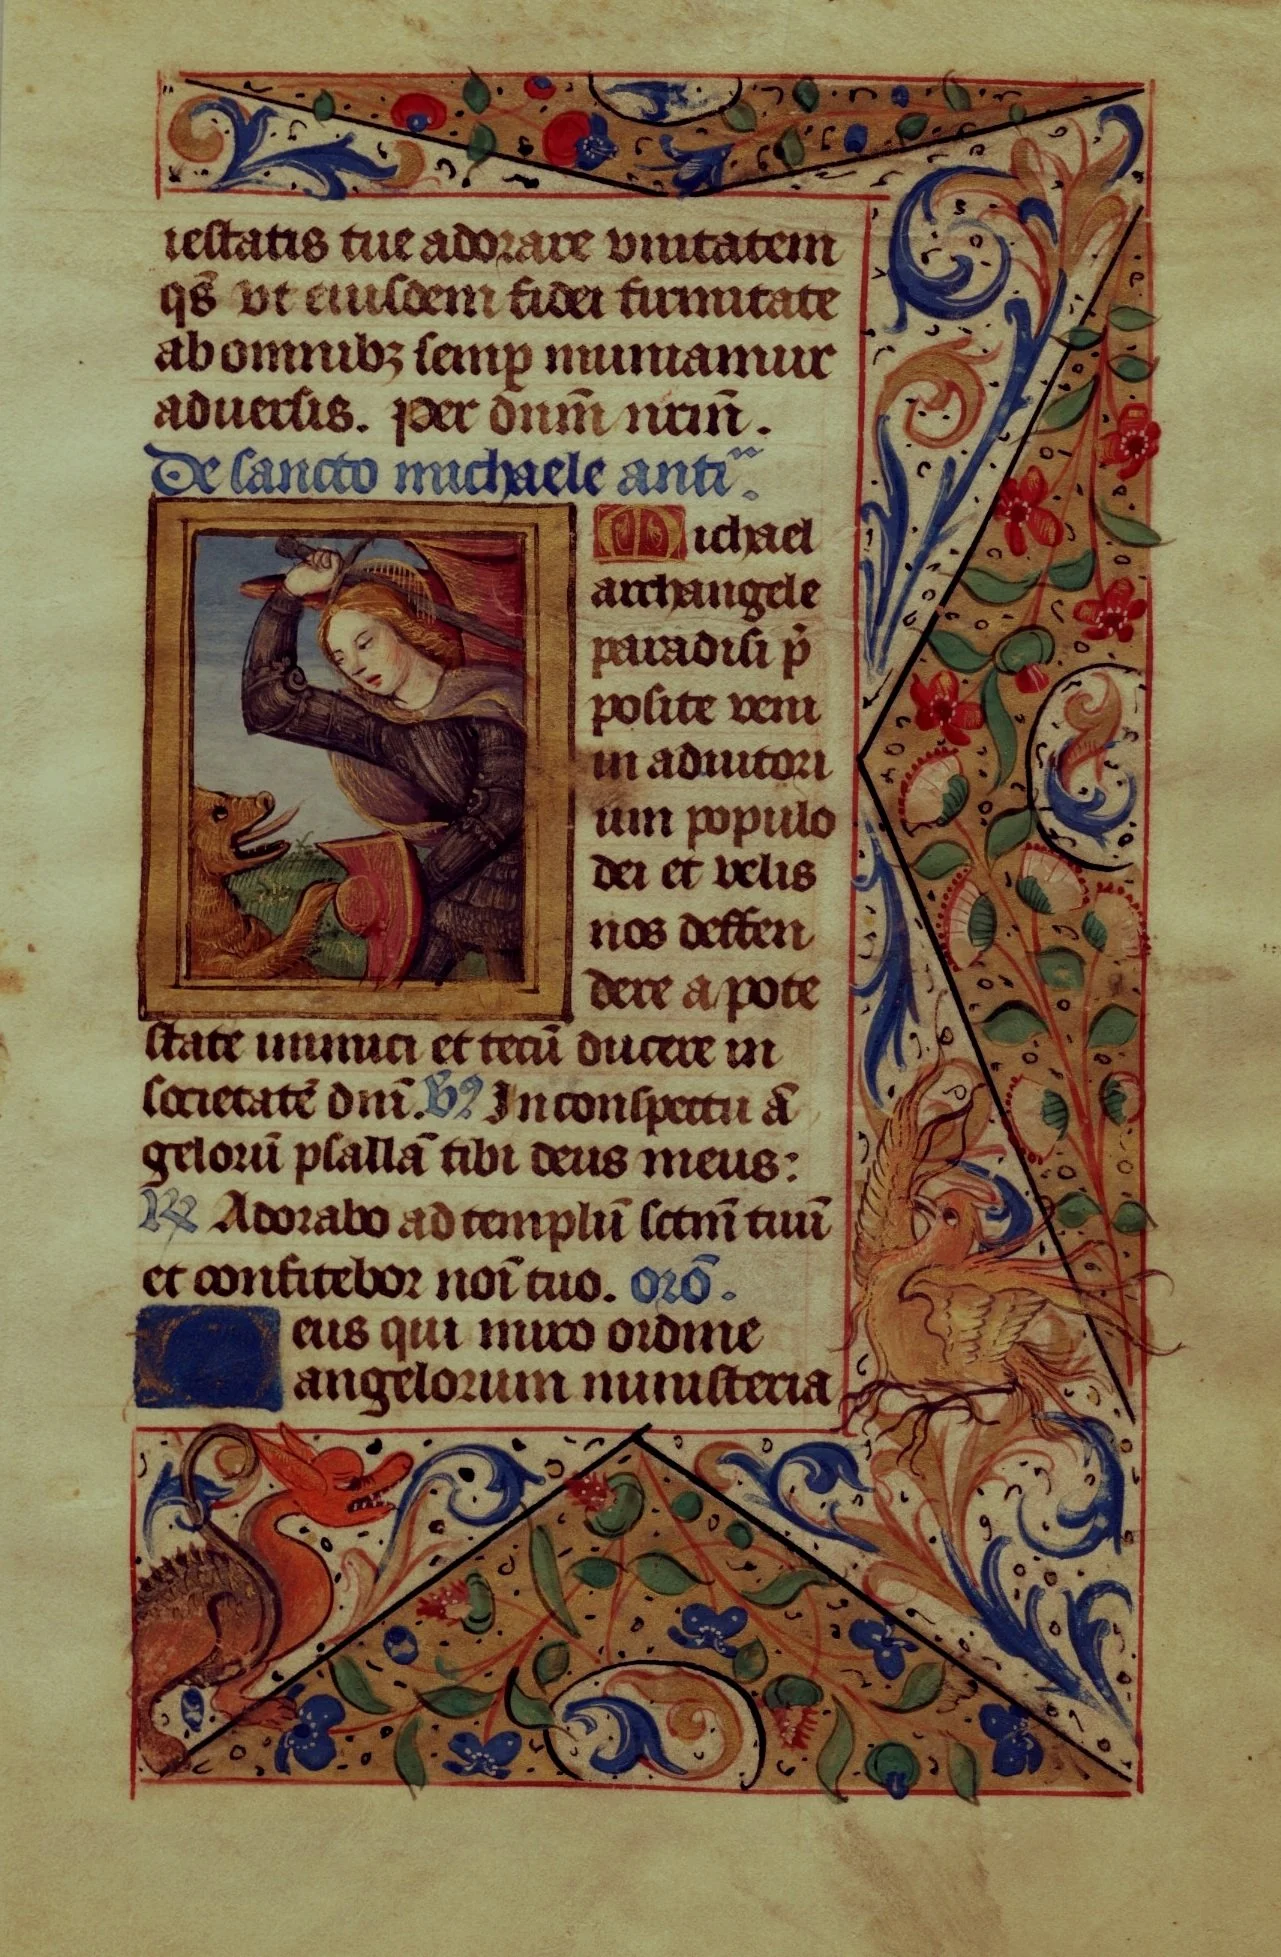 iestatis tue adorare vnitatem
qs̄ vt eiusdem fidei firmitate
ab omnibꝫ semꝑ muniamur
aduersis. per dnm̄ nrm̄.
De sancto michaele anti.
Michael
archangele
paradisi p̄
posite veni
in adiutori
um populo
dei et velis
nos deffen
dere a pote
state inimici et tecū ducere in
societatē dnī. ℣ In conspectu ā
gelorū psallā tibi deus meus:
℟ Adorabo ad templū sctm̄ tuū
et confitebor noī tuo. orō.
eus qui miro ordine
angelorum ministeria